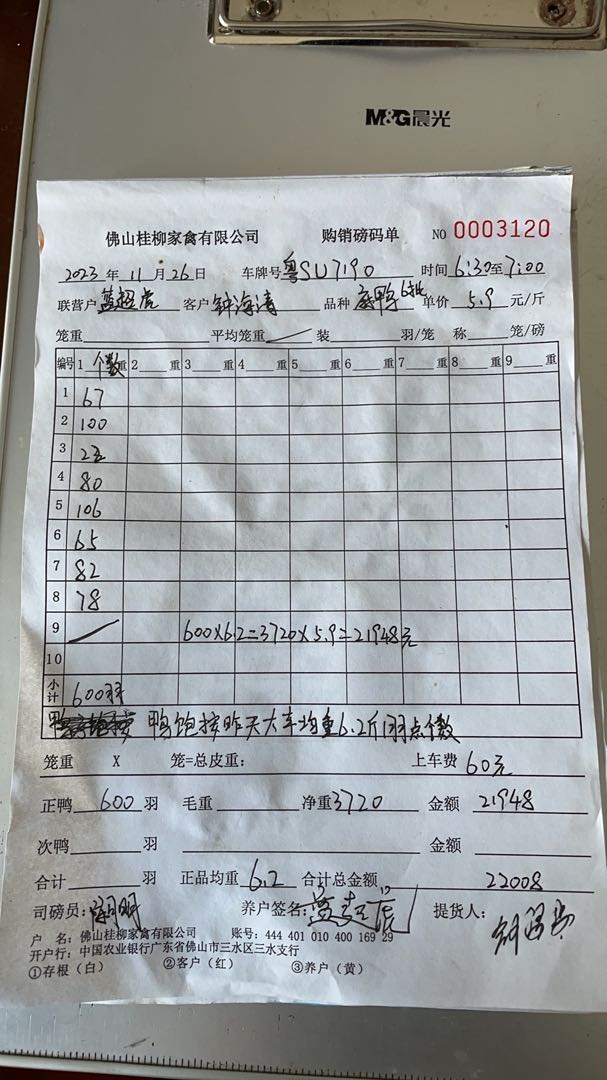 M&G晨光
佛山桂柳家禽有限公司 购销磅码单 NO 0003120
2023 年 11 月 26 日 车牌号 粤SU7190 时间 6:30 至 7:00
联营户 蓝超虎 客户 钟海涛 品种 麻鸭6批 单价 5.9 元/斤
笼重 平均笼重 装 羽/笼 称 笼/磅
编号 1 个数 重 2 重 3 重 4 重 5 重 6 重 7 重 8 重 9 重
1 67
2 100
3 22
4 80
5 106
6 65
7 82
8 78
9 600×6.2=3720×5.9=21948元
10
小计 600羽
鸭饱按昨天大车均重6.2斤/羽点个数
笼重 X 笼=总皮重: 上车费 60元
正鸭 600 羽 毛重 净重 3720 金额 21948
次鸭 羽 金额
合计 羽 正品均重 6.2 合计总金额 22008
司磅员: 养户签名: 提货人:
户 名: 佛山桂柳家禽有限公司 账号: 444 401 010 400 169 29
开户行: 中国农业银行广东省佛山市三水区三水支行
①存根（白） ②客户（红） ③养户（黄）